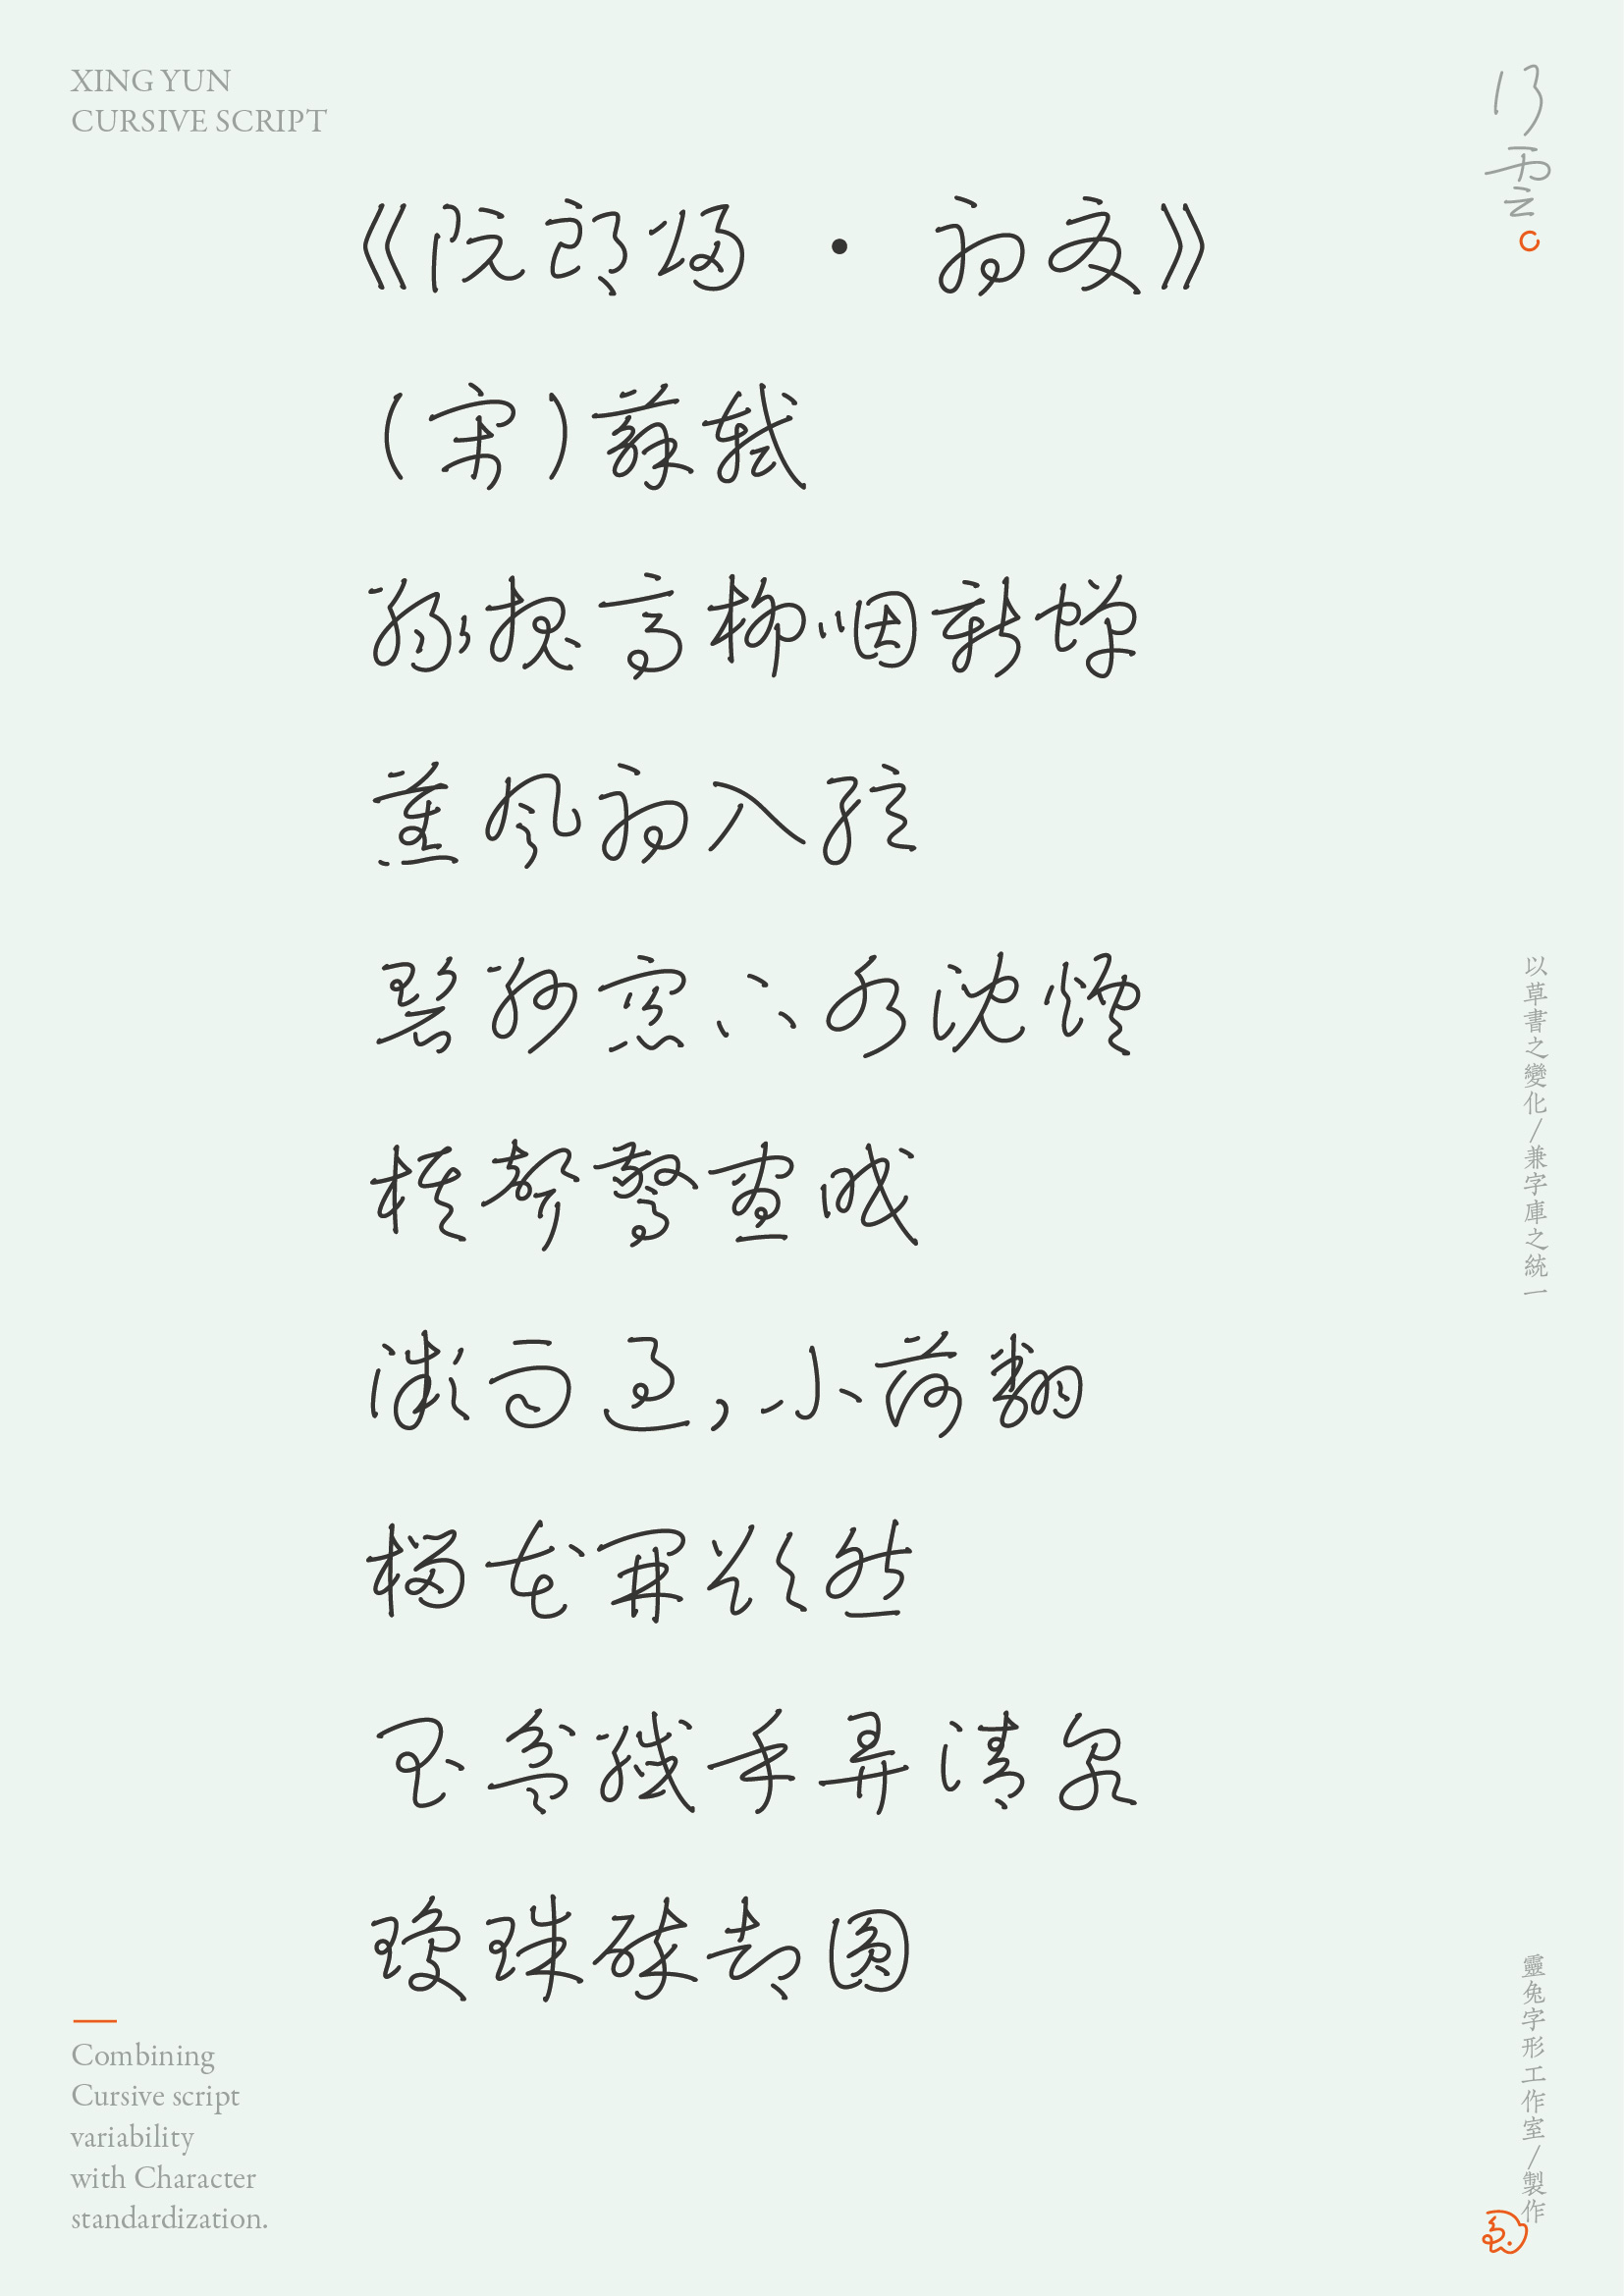 XING YUN
CURSIVE SCRIPT
行雲
《阮郎歸 · 初夏》
(宋)蘇軾
綠槐高柳咽新蟬
薰風初入弦
碧紗窗下水沈煙
棋聲驚晝眠
微雨過,小荷翻
榴花開欲然
玉盆纖手弄清泉
瓊珠碎却圓
以草書之變化/兼字庫之統一
Combining
Cursive script
variability
with Character
standardization.
靈兔字形工作室/製作